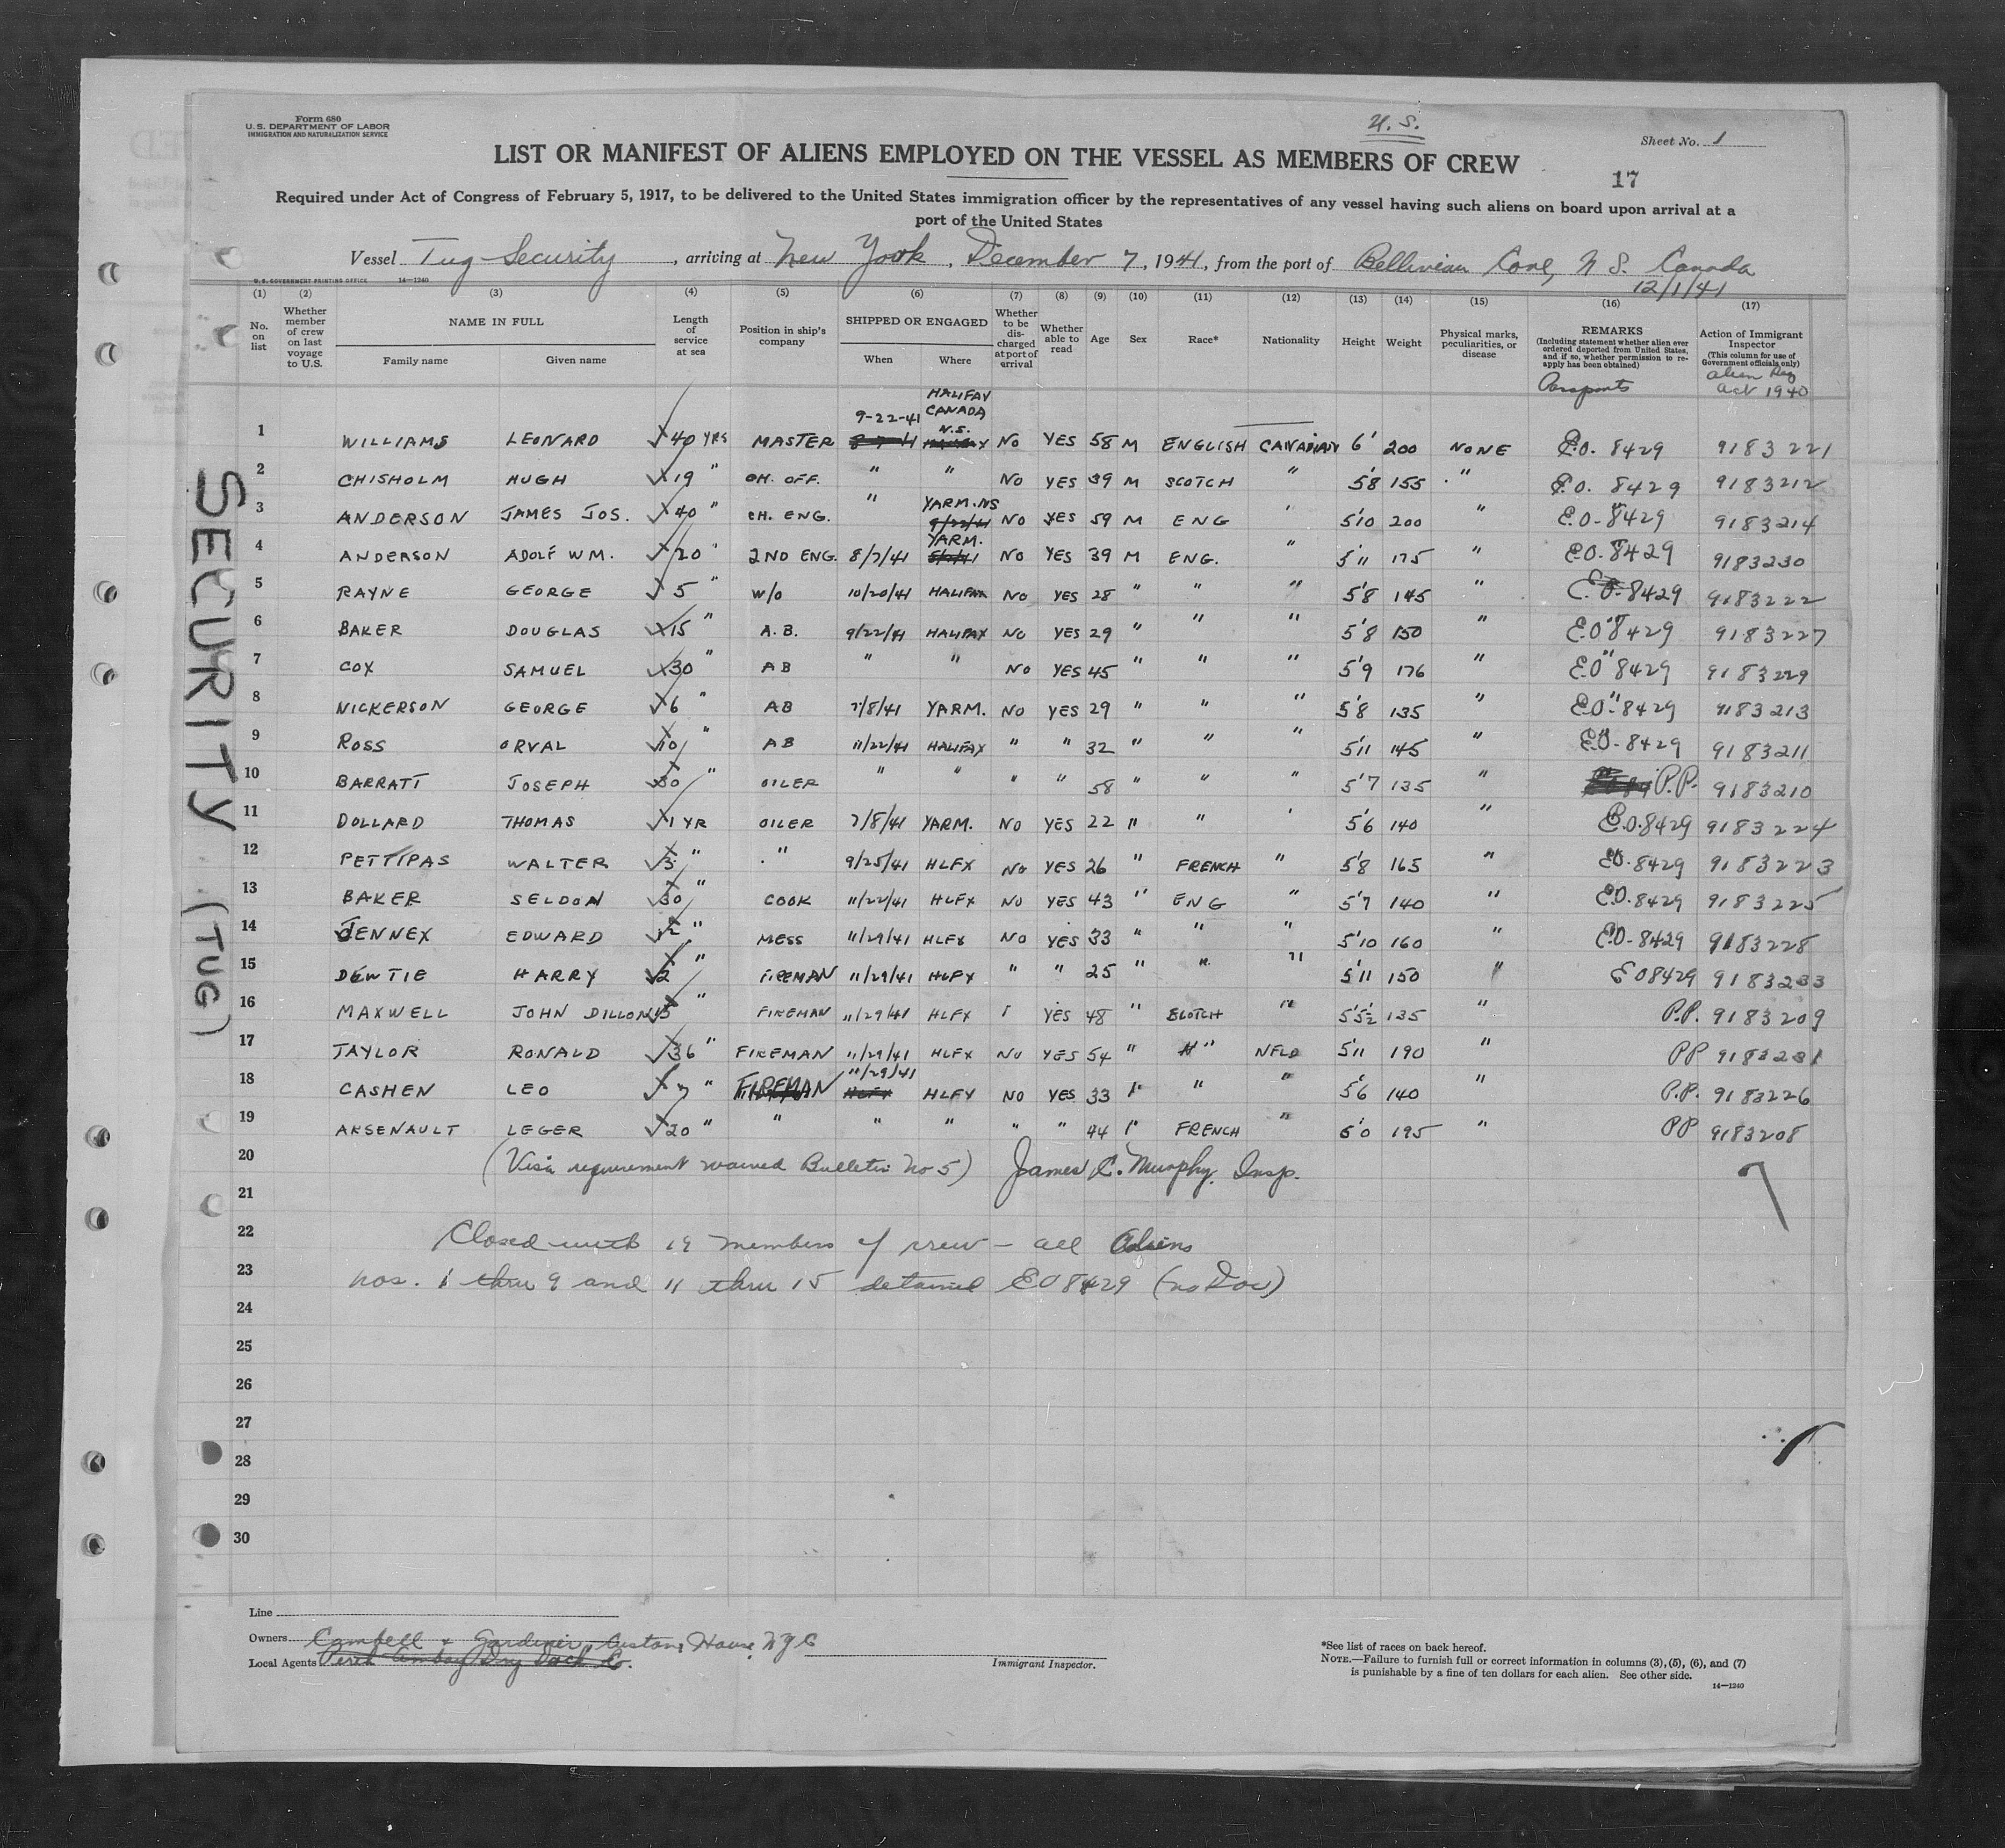 Form 680
U.S. DEPARTMENT OF LABOR
IMMIGRATION AND NATURALIZATION SERVICE
U.S.
Sheet No. 1
LIST OR MANIFEST OF ALIENS EMPLOYED ON THE VESSEL AS MEMBERS OF CREW
17
Required under Act of Congress of February 5, 1917, to be delivered to the United States immigration officer by the representatives of any vessel having such aliens on board upon arrival at a
port of the United States
Vessel Tug Security, arriving at New York, December 7, 1941, from the port of Belliveau Cove, N S. Canada
12/1/41
U.S. GOVERNMENT PRINTING OFFICE 14—1240
(1) (2) (3) (4) (5) (6) (7) (8) (9) (10) (11) (12) (13) (14) (15) (16) (17)
No. on list
Whether member of crew on last voyage to U.S.
NAME IN FULL
Family name
Given name
Length of service at sea
Position in ship's company
SHIPPED OR ENGAGED
When
Where
Whether to be discharged at port of arrival
Whether able to read
Age
Sex
Race*
Nationality
Height
Weight
Physical marks, peculiarities, or disease
REMARKS
(Including statement whether alien ever ordered deported from United States, and if so, whether permission to reapply has been obtained)
Passports
Action of Immigrant Inspector
(This column for use of Government officials only)
Alien Reg
Act 1940
HALIFAX
9-22-41 CANADA
N.S.
1 WILLIAMS LEONARD 40 YRS MASTER NO YES 58 M ENGLISH CANADIAN 6' 200 NONE E.O. 8429 9183221
2 CHISHOLM HUGH 19 " CH. OFF. " " NO YES 39 M SCOTCH " 5'8 155 " E.O. 8429 9183212
3 ANDERSON JAMES JOS. 40 " CH. ENG. " YARM. NS 9/22/41 NO YES 59 M ENG " 5'10 200 " E.O. 8429 9183214
4 ANDERSON ADOLF WM. 20 " 2ND ENG. 8/7/41 YARM. NO YES 39 M ENG. " 5'11 175 " E.O. 8429 9183230
5 RAYNE GEORGE 5 " W/O 10/20/41 HALIFAX NO YES 28 " " " 5'8 145 " E.O. 8429 9183222
6 BAKER DOUGLAS 15 " A.B. 9/22/41 HALIFAX NO YES 29 " " " 5'8 150 " E.O. 8429 9183227
7 COX SAMUEL 30 " AB " " NO YES 45 " " " 5'9 176 " E.O. 8429 9183229
8 NICKERSON GEORGE 6 " AB 7/8/41 YARM. NO YES 29 " " " 5'8 135 " E.O. 8429 9183213
9 ROSS ORVAL 10 " AB 11/22/41 HALIFAX " " 32 " " " 5'11 145 " E.O. 8429 9183211
10 BARRATT JOSEPH 30 " OILER " " " " 58 " " " 5'7 135 " P.P. 9183210
11 DOLLARD THOMAS 1 YR OILER 7/8/41 YARM. NO YES 22 " " " 5'6 140 " E.O. 8429 9183224
12 PETTIPAS WALTER 3 " " 9/25/41 HLFX NO YES 26 " FRENCH " 5'8 165 " E.O. 8429 9183223
13 BAKER SELDON 30 " COOK 11/22/41 HLFX NO YES 43 " ENG " 5'7 140 " E.O. 8429 9183225
14 JENNEX EDWARD 2 " MESS 11/29/41 HLFX NO YES 33 " " " 5'10 160 " E.O. 8429 9183228
15 DEWTIE HARRY 2 " FIREMAN 11/29/41 HLFX " " 25 " " " 5'11 150 " E O 8429 9183233
16 MAXWELL JOHN DILLON " FIREMAN 11/29/41 HLFX " YES 48 " SCOTCH " 5'5½ 135 " P.P. 9183209
17 TAYLOR RONALD 36 " FIREMAN 11/29/41 HLFX NO YES 54 " " NFLD 5'11 190 " PP 9183231
11/29/41
18 CASHEN LEO 7 " FIREMAN HLFX NO YES 33 " " " 5'6 140 " P.P. 9183226
19 ARSENAULT LEGER 20 " " " " " " 44 " FRENCH " 6'0 195 " PP 9183208
20 (Visa requirement waived Bulletin No 5) James C. Murphy, Insp.
21
22 Closed with 19 members of crew – all Aliens
23 nos. 1 thru 9 and 11 thru 15 detained E O 8429 (no Doc)
24
25
26
27
28
29
30
SECURITY (TUG)
Line
Owners Cambell & Gardiner, Customs House, N Y C
Local Agents Perth Amboy Dry Dock Co.
Immigrant Inspector.
*See list of races on back hereof.
NOTE.—Failure to furnish full or correct information in columns (3), (5), (6), and (7)
is punishable by a fine of ten dollars for each alien. See other side.
14—1240